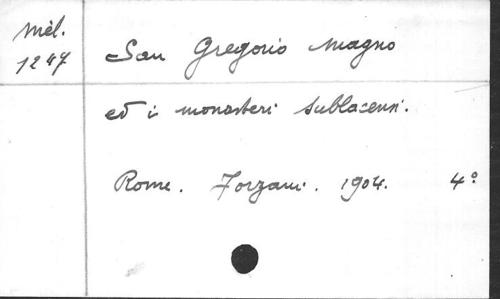 Mèl.
1247
San Gregorio Magno
ed i monasteri sublacensi.
Rome. Forzani. 1904. 4°